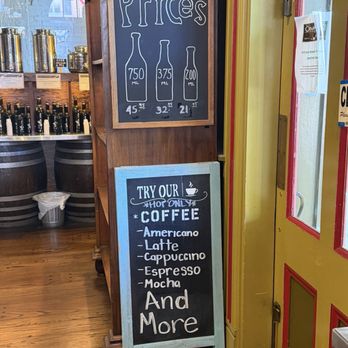 Prices
750
ML
375
ML
200
ML
45
32
21
TRY OUR
HOT ONLY
COFFEE
-Americano
-Latte
-Cappuccino
-Espresso
-Mocha
And
More